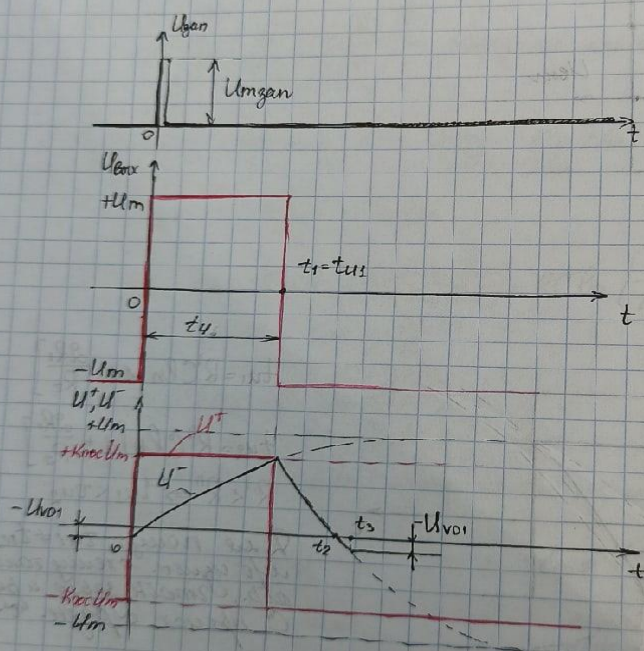 Uзап
Umзап
0
t
Uвых
+Um
t1=tu1
0
t
tu
-Um
U⁺,U⁻
+Um
U⁺
+KпосUm
U⁻
-UVD1
t3
-UVD1
0
t2
t
-KпосUm
-Um